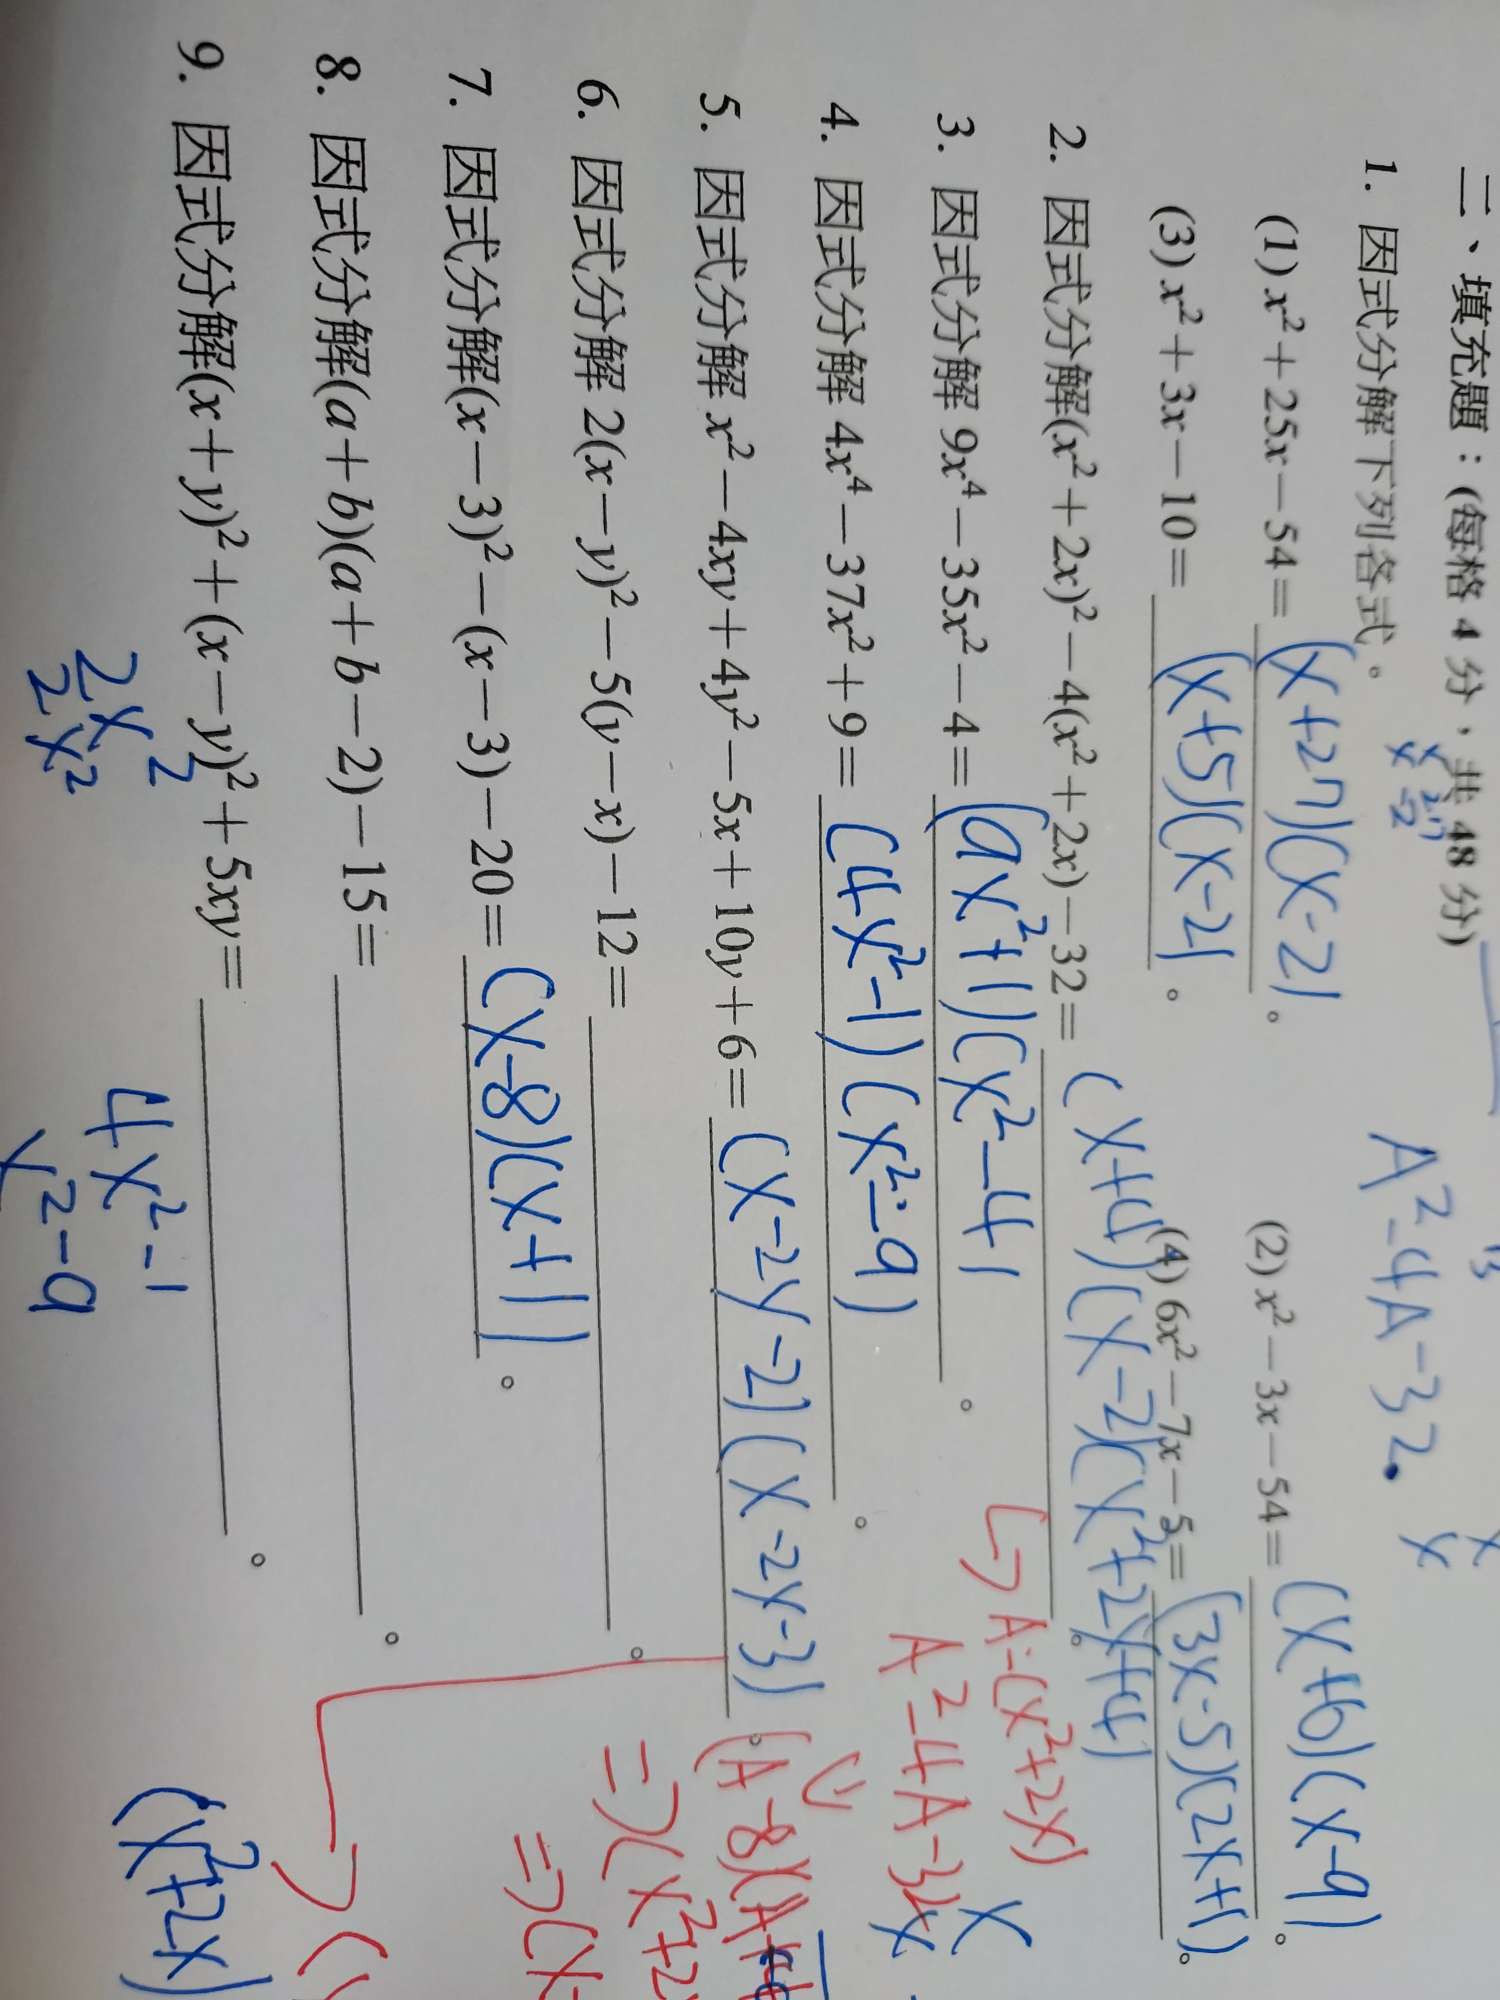 二、填充題：(每格 4 分，共 48 分)
1. 因式分解下列各式。
(1) x²+25x−54= (x+27)(x-2)。
(2) x²−3x−54= (x+6)(x-9)。
(3) x²+3x−10= (x+5)(x-2)。
(4) 6x²−7x−5= (3x-5)(2x+1)。
A²-4A-32
2. 因式分解(x²+2x)²−4(x²+2x)−32= (x+4)(x-2)(x²+2x+4)。
3. 因式分解 9x⁴−35x²−4= (9x²+1)(x²-4)。
A-(x²+2x)
A²-4A-32
4. 因式分解 4x⁴−37x²+9= (4x²-1)(x²-9)。
5. 因式分解 x²−4xy+4y²−5x+10y+6= (x-2y-2)(x-2y-3)。
(A-8)(A+4
6. 因式分解 2(x−y)²−5(y−x)−12= 。
=>(x²+2
7. 因式分解(x−3)²−(x−3)−20= (x-8)(x+1)。
=>(x-
8. 因式分解(a+b)(a+b−2)−15= 。
9. 因式分解(x+y)²+(x−y)²+5xy= 。
(x²+2x)
2x²
2x²
4x²-1
x²-9